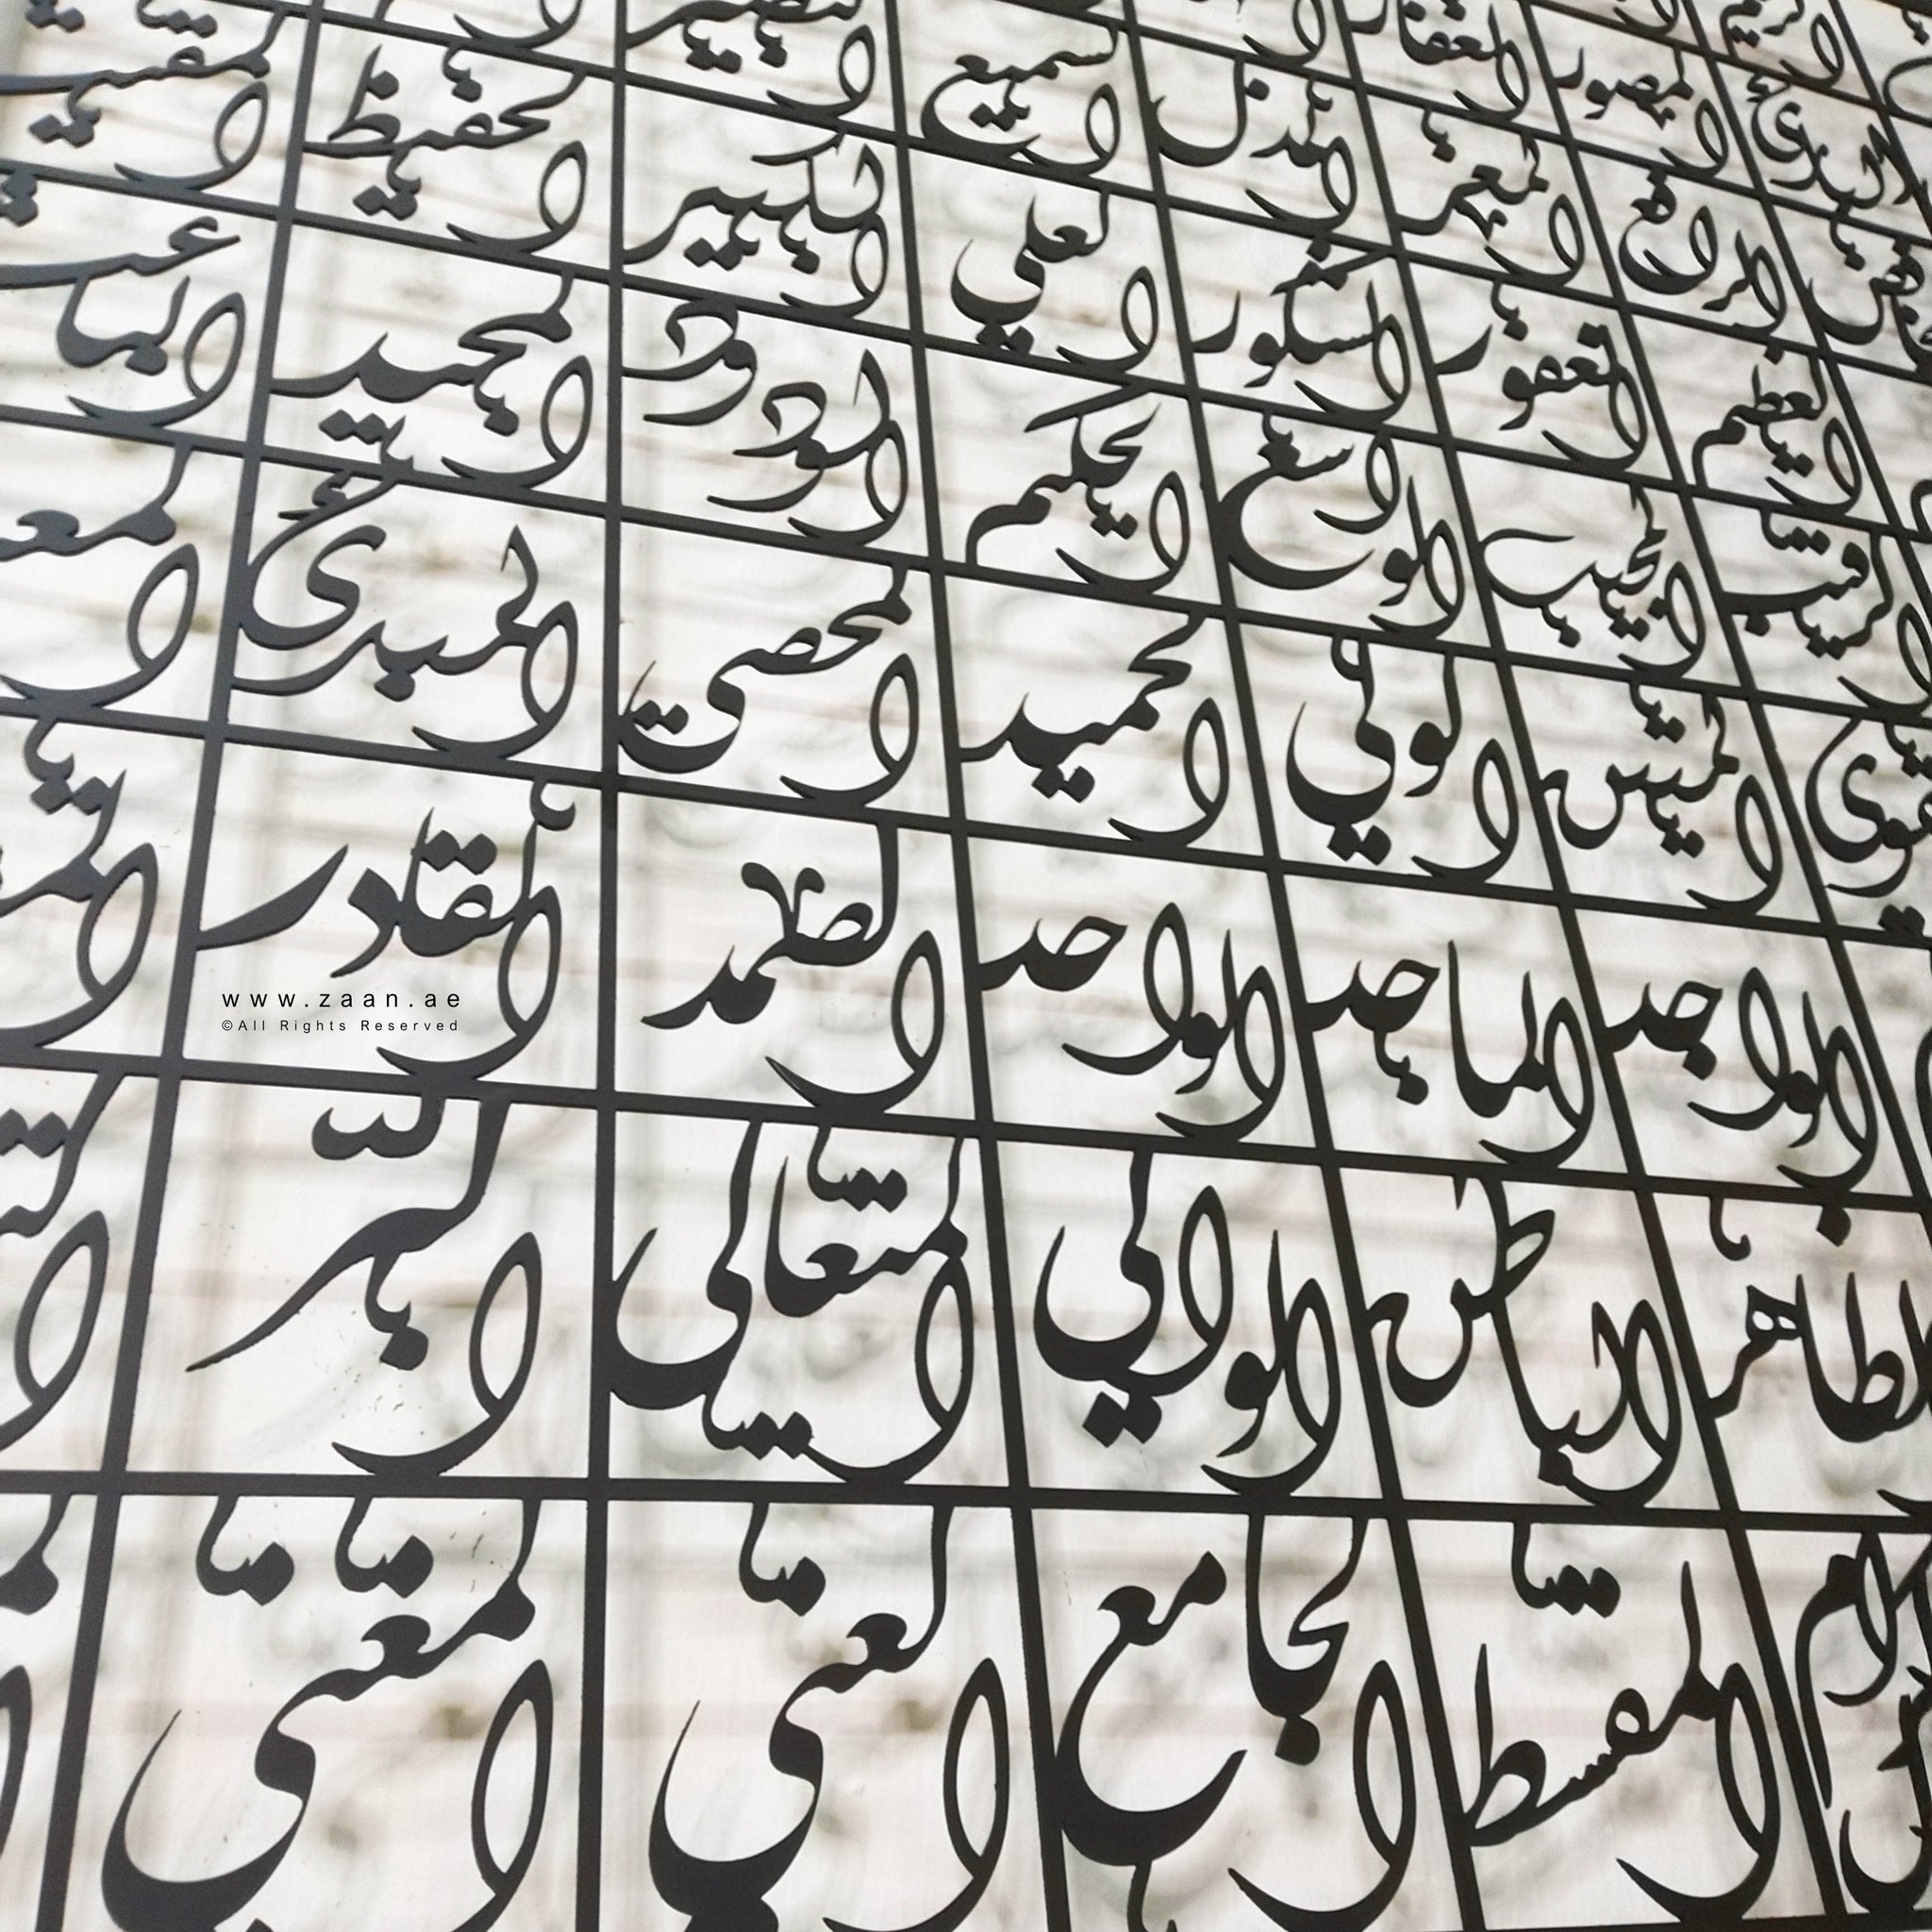 البارئ المصور الغفار
الرافع المعز المذل السميع البصير
العظيم الغفور الشكور العلي الكبير الحفيظ المقيت
الرقيب المجيب الواسع الحكيم الودود المجيد الباعث
القوي المتين الولي الحميد المحصي المبدئ
الواجد الماجد الواحد الصمد القادر
www.zaan.ae
©All Rights Reserved
الظاهر الباطن الوالي المتعالي البر
المقسط الجامع الغني المغني